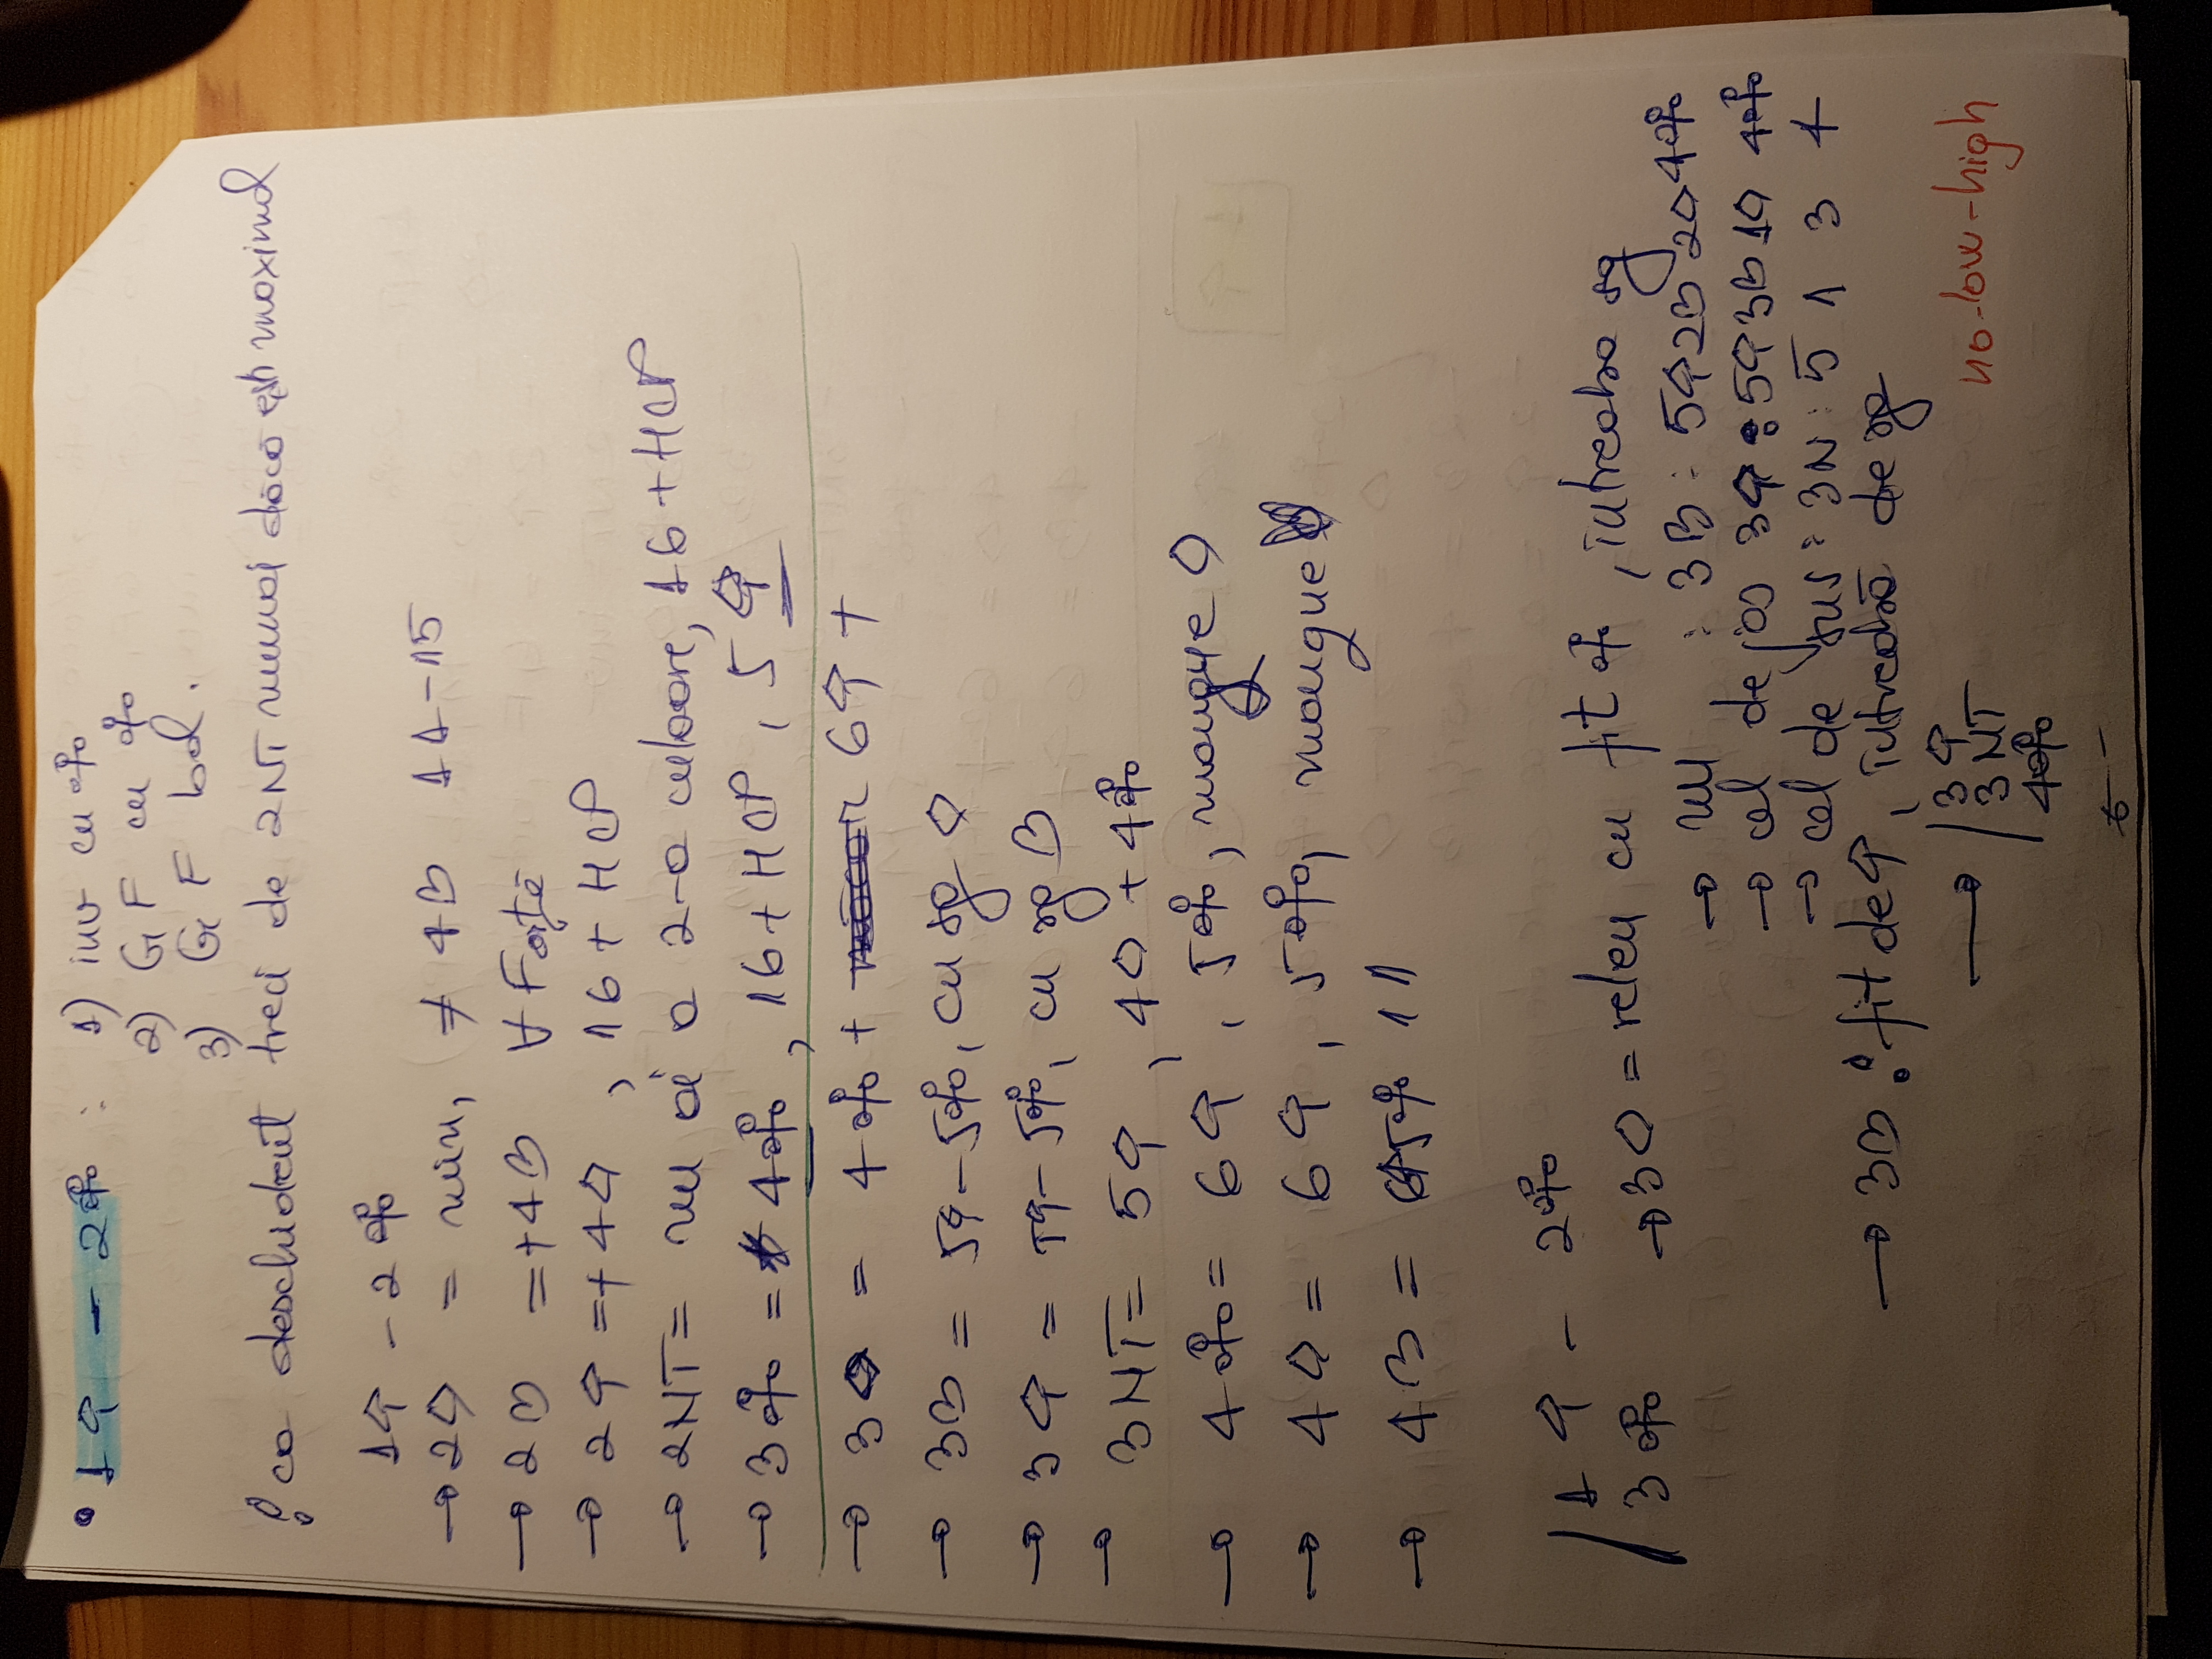 • 1♠ - 2♣ : 1) inv cu ♣
2) GF cu ♣
3) GF bal.
! ca deschident treci de 2NT numai dacă ești maximal
1♠ - 2♣
→ 2♢ = min, ≠ 4♡ 11-15
→ 2♡ = + 4♡ ∀ Forță
→ 2♠ = + 4♢, 16 + HCP
→ 2NT = nu ai a 2-a culoare, 16 + HCP
→ 3♣ = 4♣, 16 + HCP, 5♠
→ 3♢ = 4♣ + 6♠ +
→ 3♡ = 5♠-5♣, cu sg ♢
→ 3♠ = 5♠-5♣, cu sg ♡
→ 3NT = 5♠, 4♢ + 4♣
→ 4♣ = 6♠, 5♣, mangue ♢
→ 4♢ = 6♠, 5♣, mangue ♡
→ 4♡ = 6♠5♣ 11
1♠ - 2♣
3♣ → 3♢ = releu cu fit ♣, întreaba sg
→ nu : 3♡ : 5♠2♡2♢4♣
→ cel de jos 3♠ : 5♠3♡1♢ 4♣
→ cel de sus : 3N : 5 1 3 4
→ 3♡ : fit de ♠, întreabă de sg
→ 3♠
3NT
4♣
no-low-high